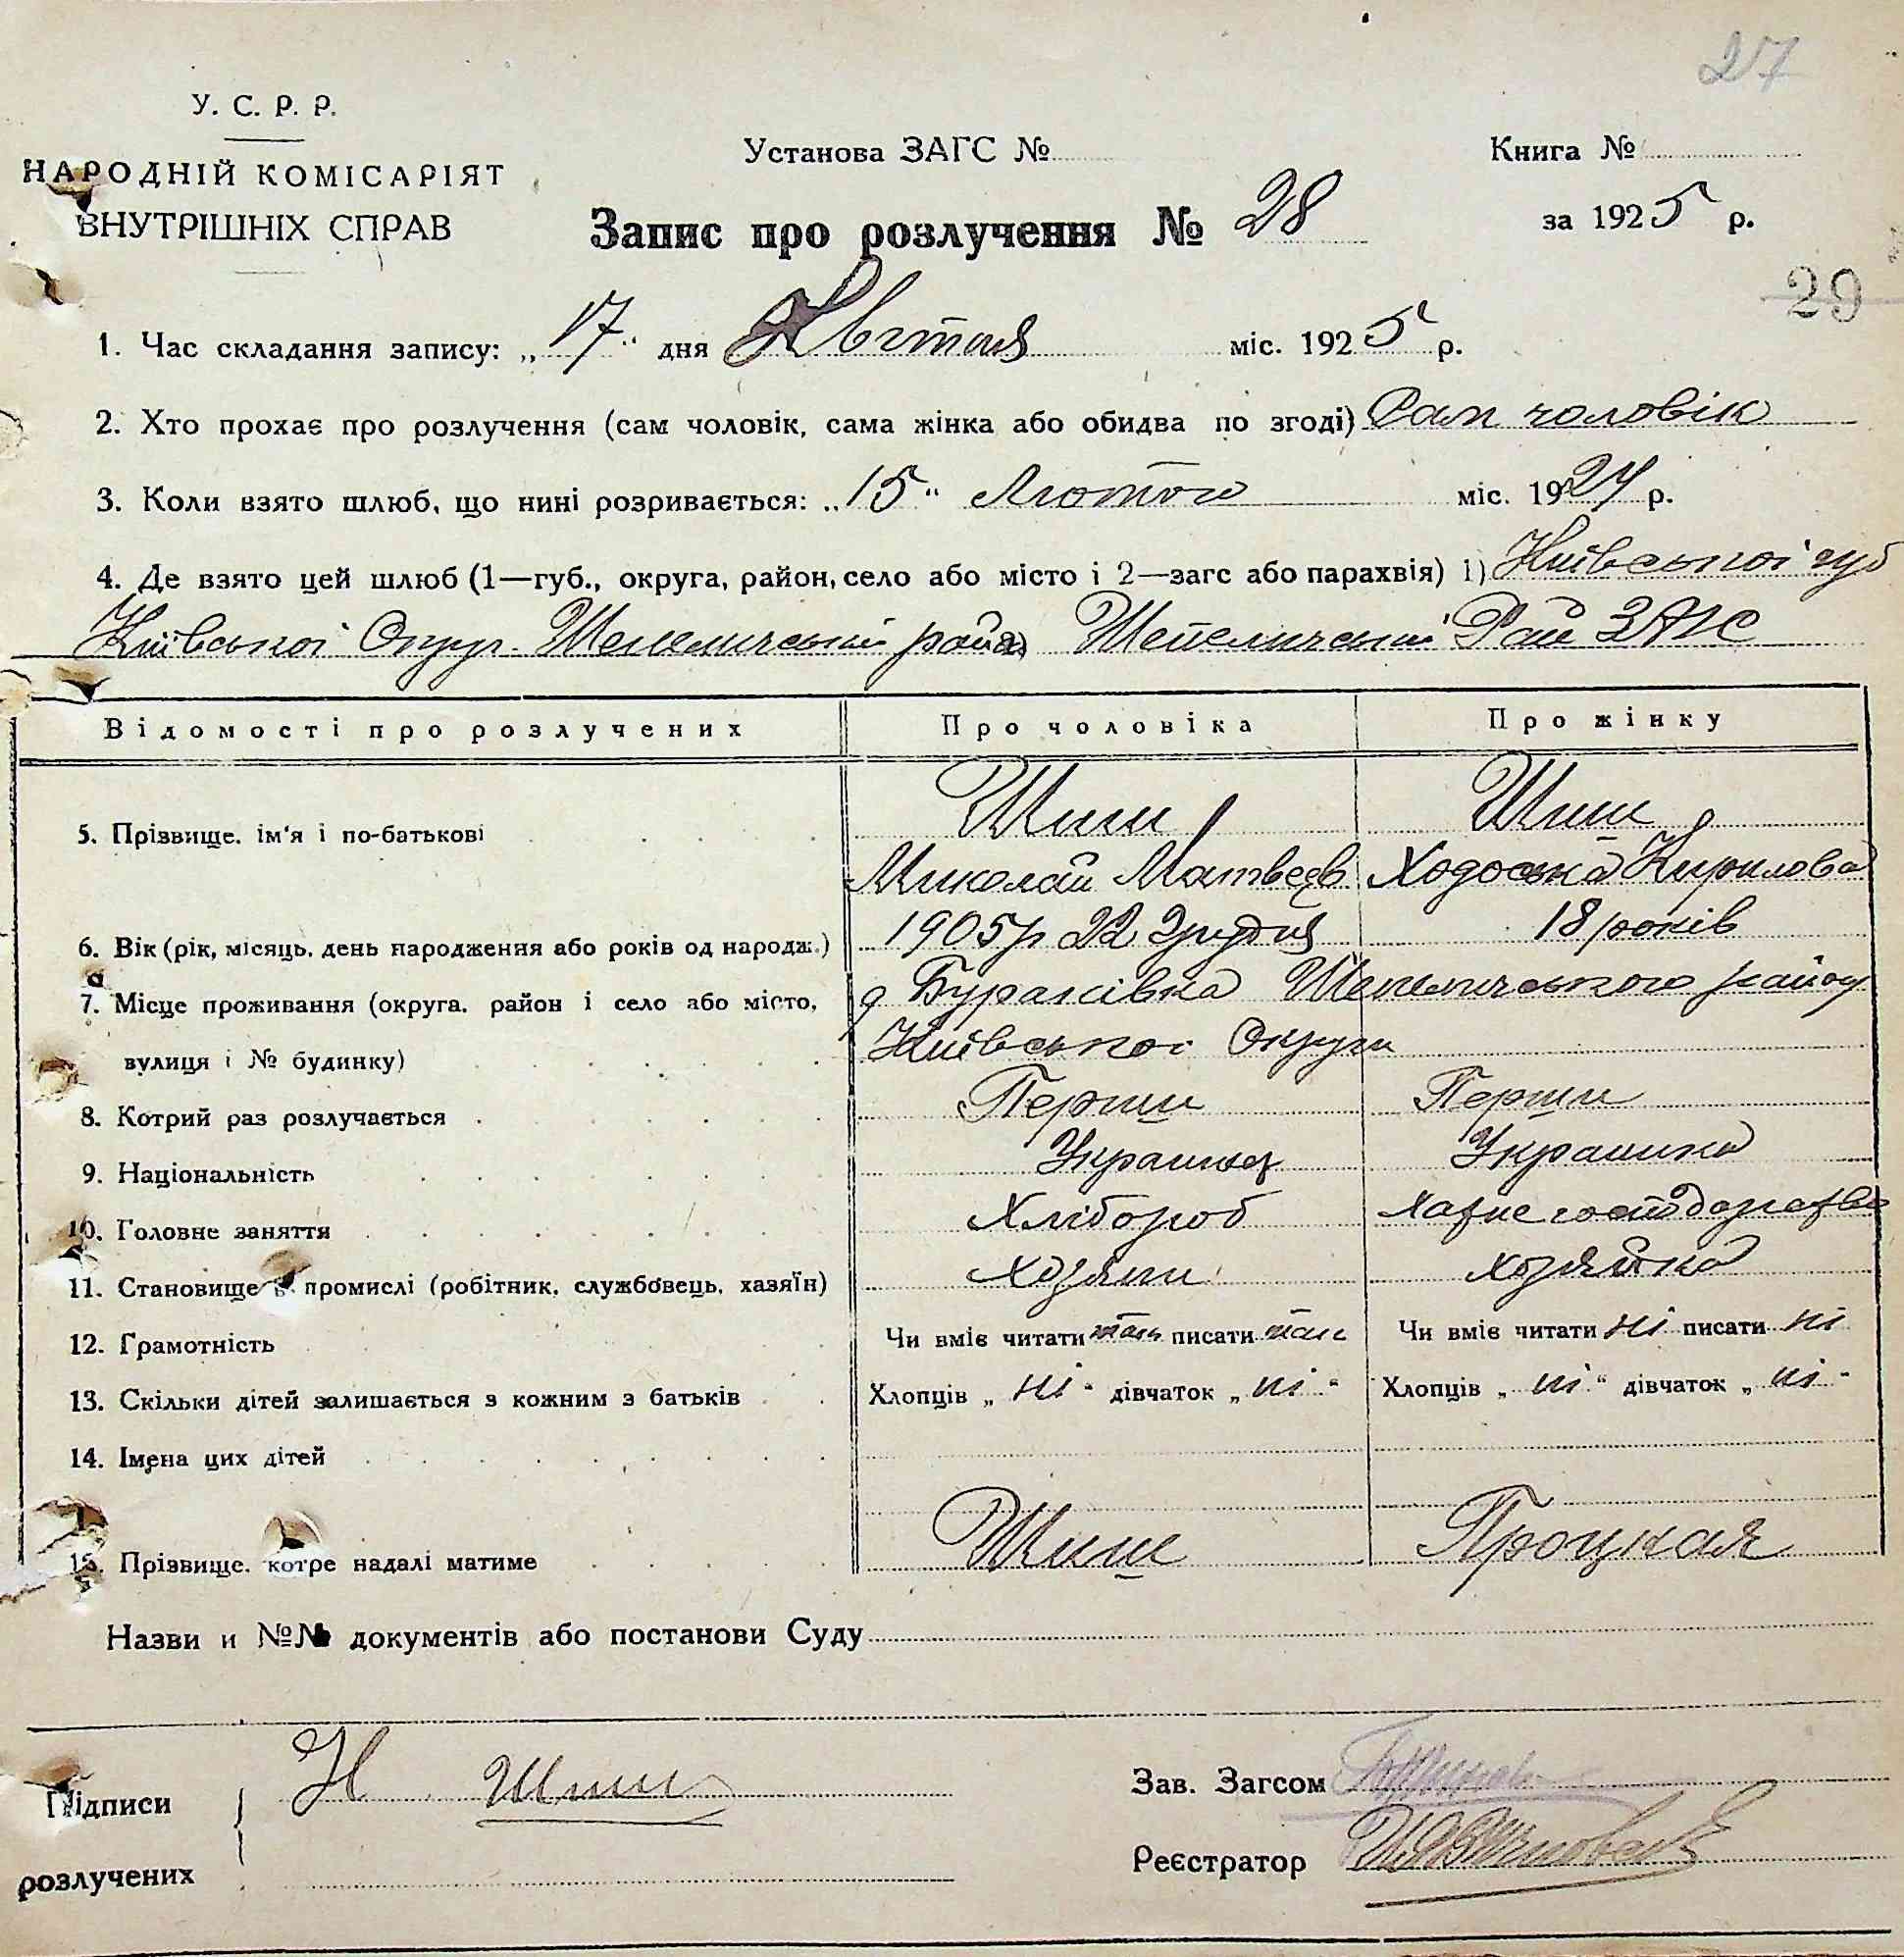 27
У. С. Р. Р.
НАРОДНІЙ КОМІСАРІЯТ
ВНУТРІШНІХ СПРАВ
Установа ЗАГС №
Книга №
Запис про розлучення № 28
за 1925 р.
29
1. Час складання запису: „17" дня Квітня міс. 1925 р.
2. Хто прохає про розлучення (сам чоловік, сама жінка або обидва по згоді) Сам чоловік
3. Коли взято шлюб, що нині розривається: „15" Лютого міс. 1924 р.
4. Де взято цей шлюб (1—губ., округа, район, село або місто і 2—загс або парахвія) 1) Київської губ
Київської Округ. Шепеличський район Шепеличський Рай ЗАГС
Відомості про розлучених Про чоловіка Про жінку
5. Прізвище. ім'я і по-батькові Шиш Шиш
Миколай Матвеєв Ходоська Кирилова
6. Вік (рік, місяць, день народження або років од народж.) 1905р 22 Грудня 18 років
7. Місце проживання (округа. район і село або місто, д Бураківка Шепеличського району
вулиця і № будинку) Київської Округи
8. Котрий раз розлучається Перший Перший
9. Національність Українец Українка
10. Головне заняття Хлібороб Хатне господарство
11. Становище в промислі (робітник, службовець, хазяїн) Хозяин хозяйка
12. Грамотність Чи вміє читати так писати так Чи вміє читати ні писати ні
13. Скільки дітей залишається з кожним з батьків Хлопців „ні" дівчаток „ні" Хлопців „ні" дівчаток „ні"
14. Імена цих дітей
15. Прізвище. котре надалі матиме Шиш Процкая
Назви и №№ документів або постанови Суду
Підписи Н Шиш Зав. Загсом
розлучених Реєстратор